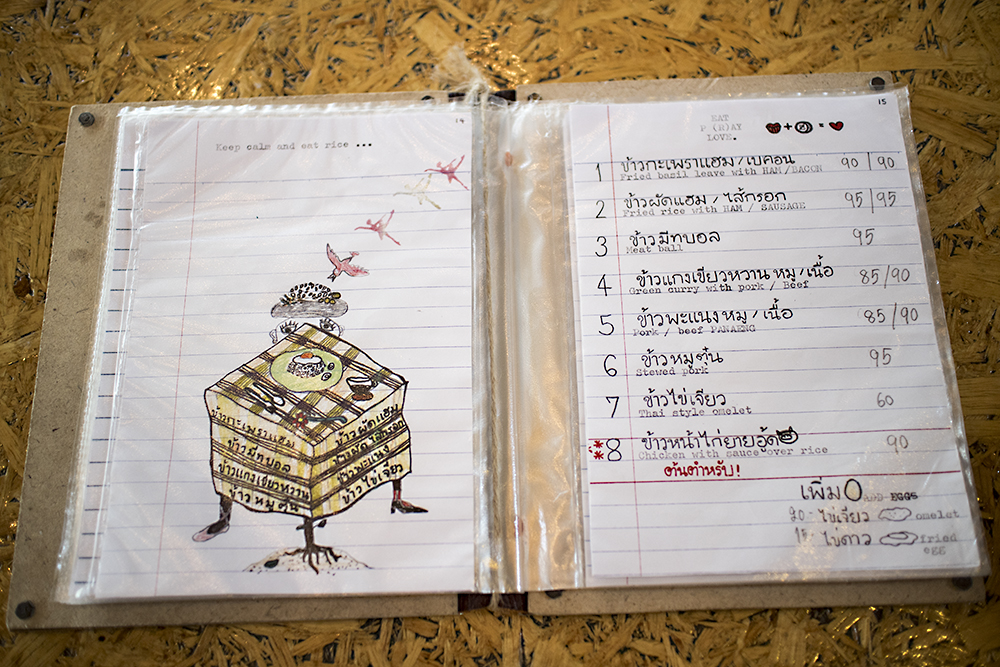 14
Keep calm and eat rice ...
ข้าวกะเพราแฮม
ข้าวมีทบอล
ข้าวแกงเขียวหวาน
ข้าวหมูตุ๋น
ข้าวผัดแฮม
ข้าวผัดไส้กรอก
ข้าวพะแนง
ข้าวไข่เจียว
15
EAT
P (R)AY
LOVE.
1 ข้าวกะเพราแฮม/เบคอน 90/90
Fried basil leave with HAM/BACON
2 ข้าวผัดแฮม/ไส้กรอก 95/95
Fried rice with HAM / SAUSAGE
3 ข้าวมีทบอล 95
Meat ball
4 ข้าวแกงเขียวหวาน หมู/เนื้อ 85/90
Green curry with pork / Beef
5 ข้าวพะแนง หมู/เนื้อ 85/90
Pork / beef PANAENG
6 ข้าวหมูตุ๋น 95
Stewed pork
7 ข้าวไข่เจียว 60
Thai style omelet
8 ข้าวหน้าไก่ยายอู๊ด 90
Chicken with sauce over rice
ต้นตำหรับ!
เพิ่ม ADD EGGS
20- ไข่เจียว omelet
15- ไข่ดาว fried
egg